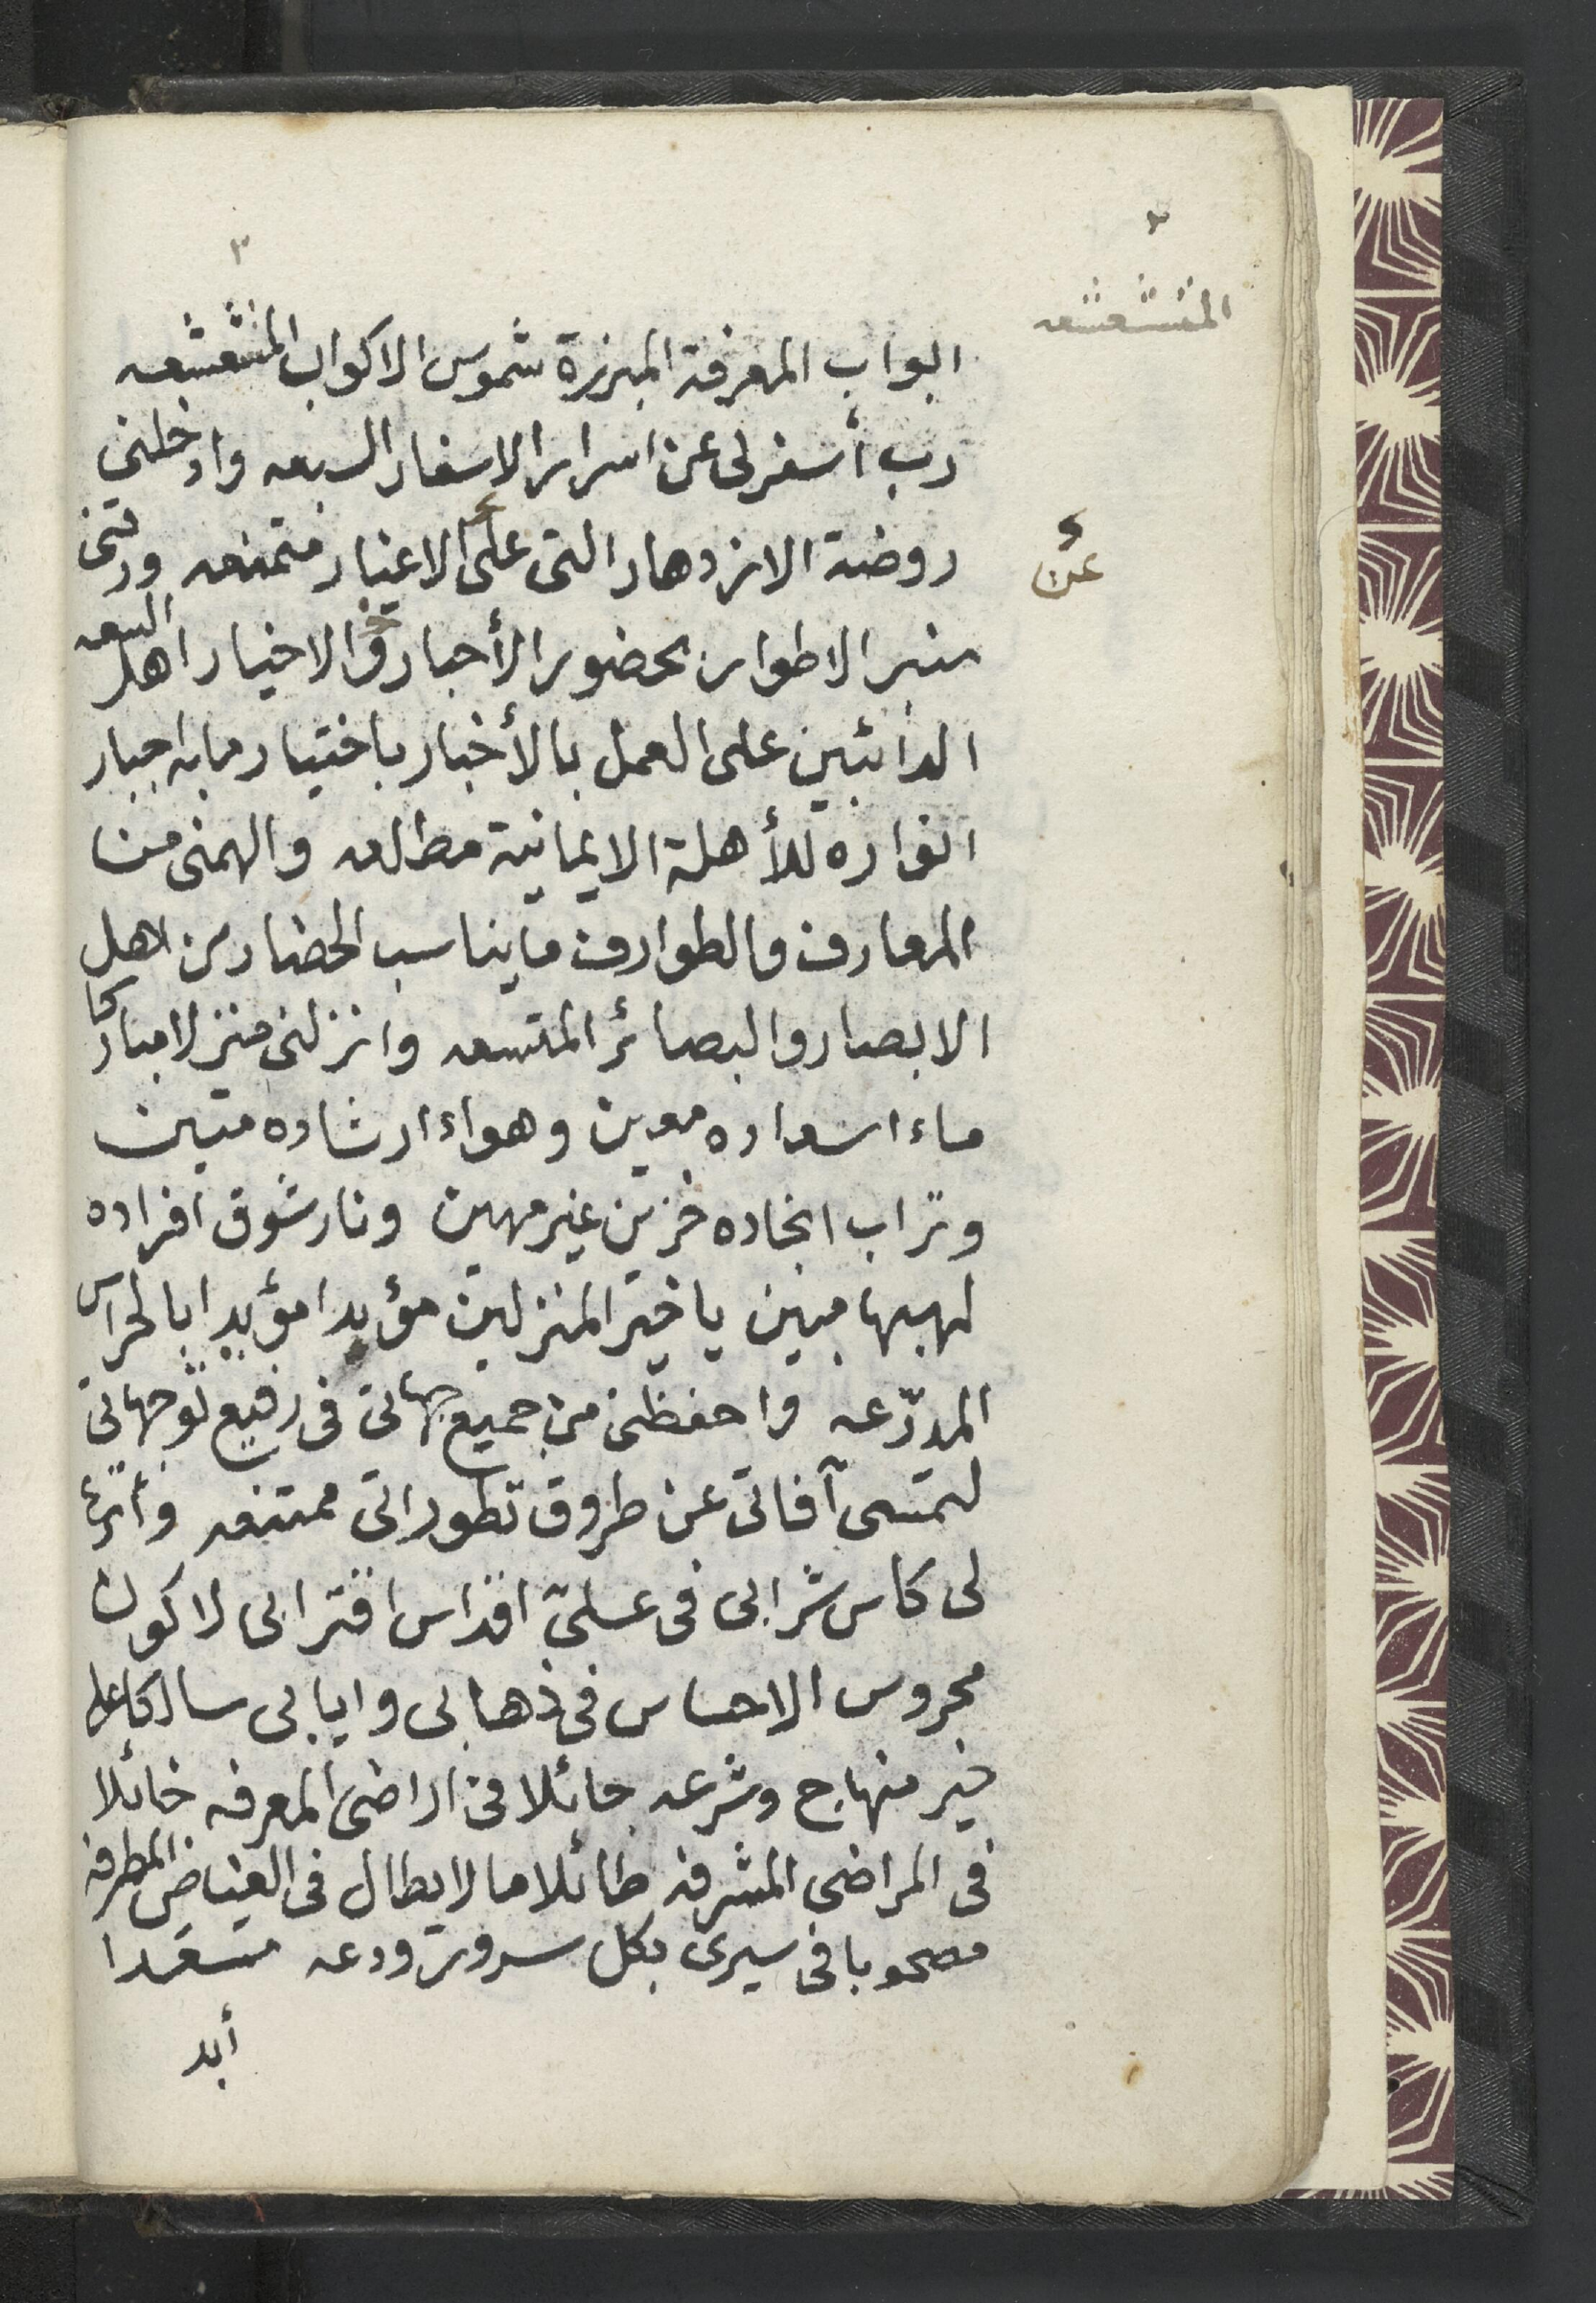 ٣
٣
المتشعشعه
ابواب المعرفة المبرزة شموس الاكواب المتشعشعه
رب أسفر لى عن اسرار الاسفار السبعه وادخلنى
روضة الازدهار التى على الاغيار متمنعه ورقنى
عن
منبر الاطوار بحضور الأحبار والاخيار اهل السعه
الدائبين على العمل بالأخبار باختيار مابه اجبار
انواره للأهلة الايمانية مطالعه والهمنى من
المعارف والطوارف مايناسب الحضار من اهل
الابصار والبصائر المتسعه وانزلنى منزلا مباركا
ماء اسعاده معين وهواء ارشاده متين
وتراب انجاده خزين غير مهين ونار شوق افراده
لهيبها مبين يا خير المنزلين مؤبدا مؤيدا بالحراس
المدرّعه واحفظنى من جميع جهاتى فى رفيع توجهاتى
لتمسى آفاتى عن طروق تطوراتى ممتنعه وأترع
لى كاس شرابى فى علىّ اقداس اقترابى لاكون
محروس الاحساس فى ذهابى وايابى سالكا على
خير منهاج وشرعه جائلا فى اراضى المعرفه خائلا
فى المراضى المشرفه طائلا ما لايطال فى الغياض المطرفه
مصحوبا فى سيرى بكل سرور ودعه مسعدا
أبد